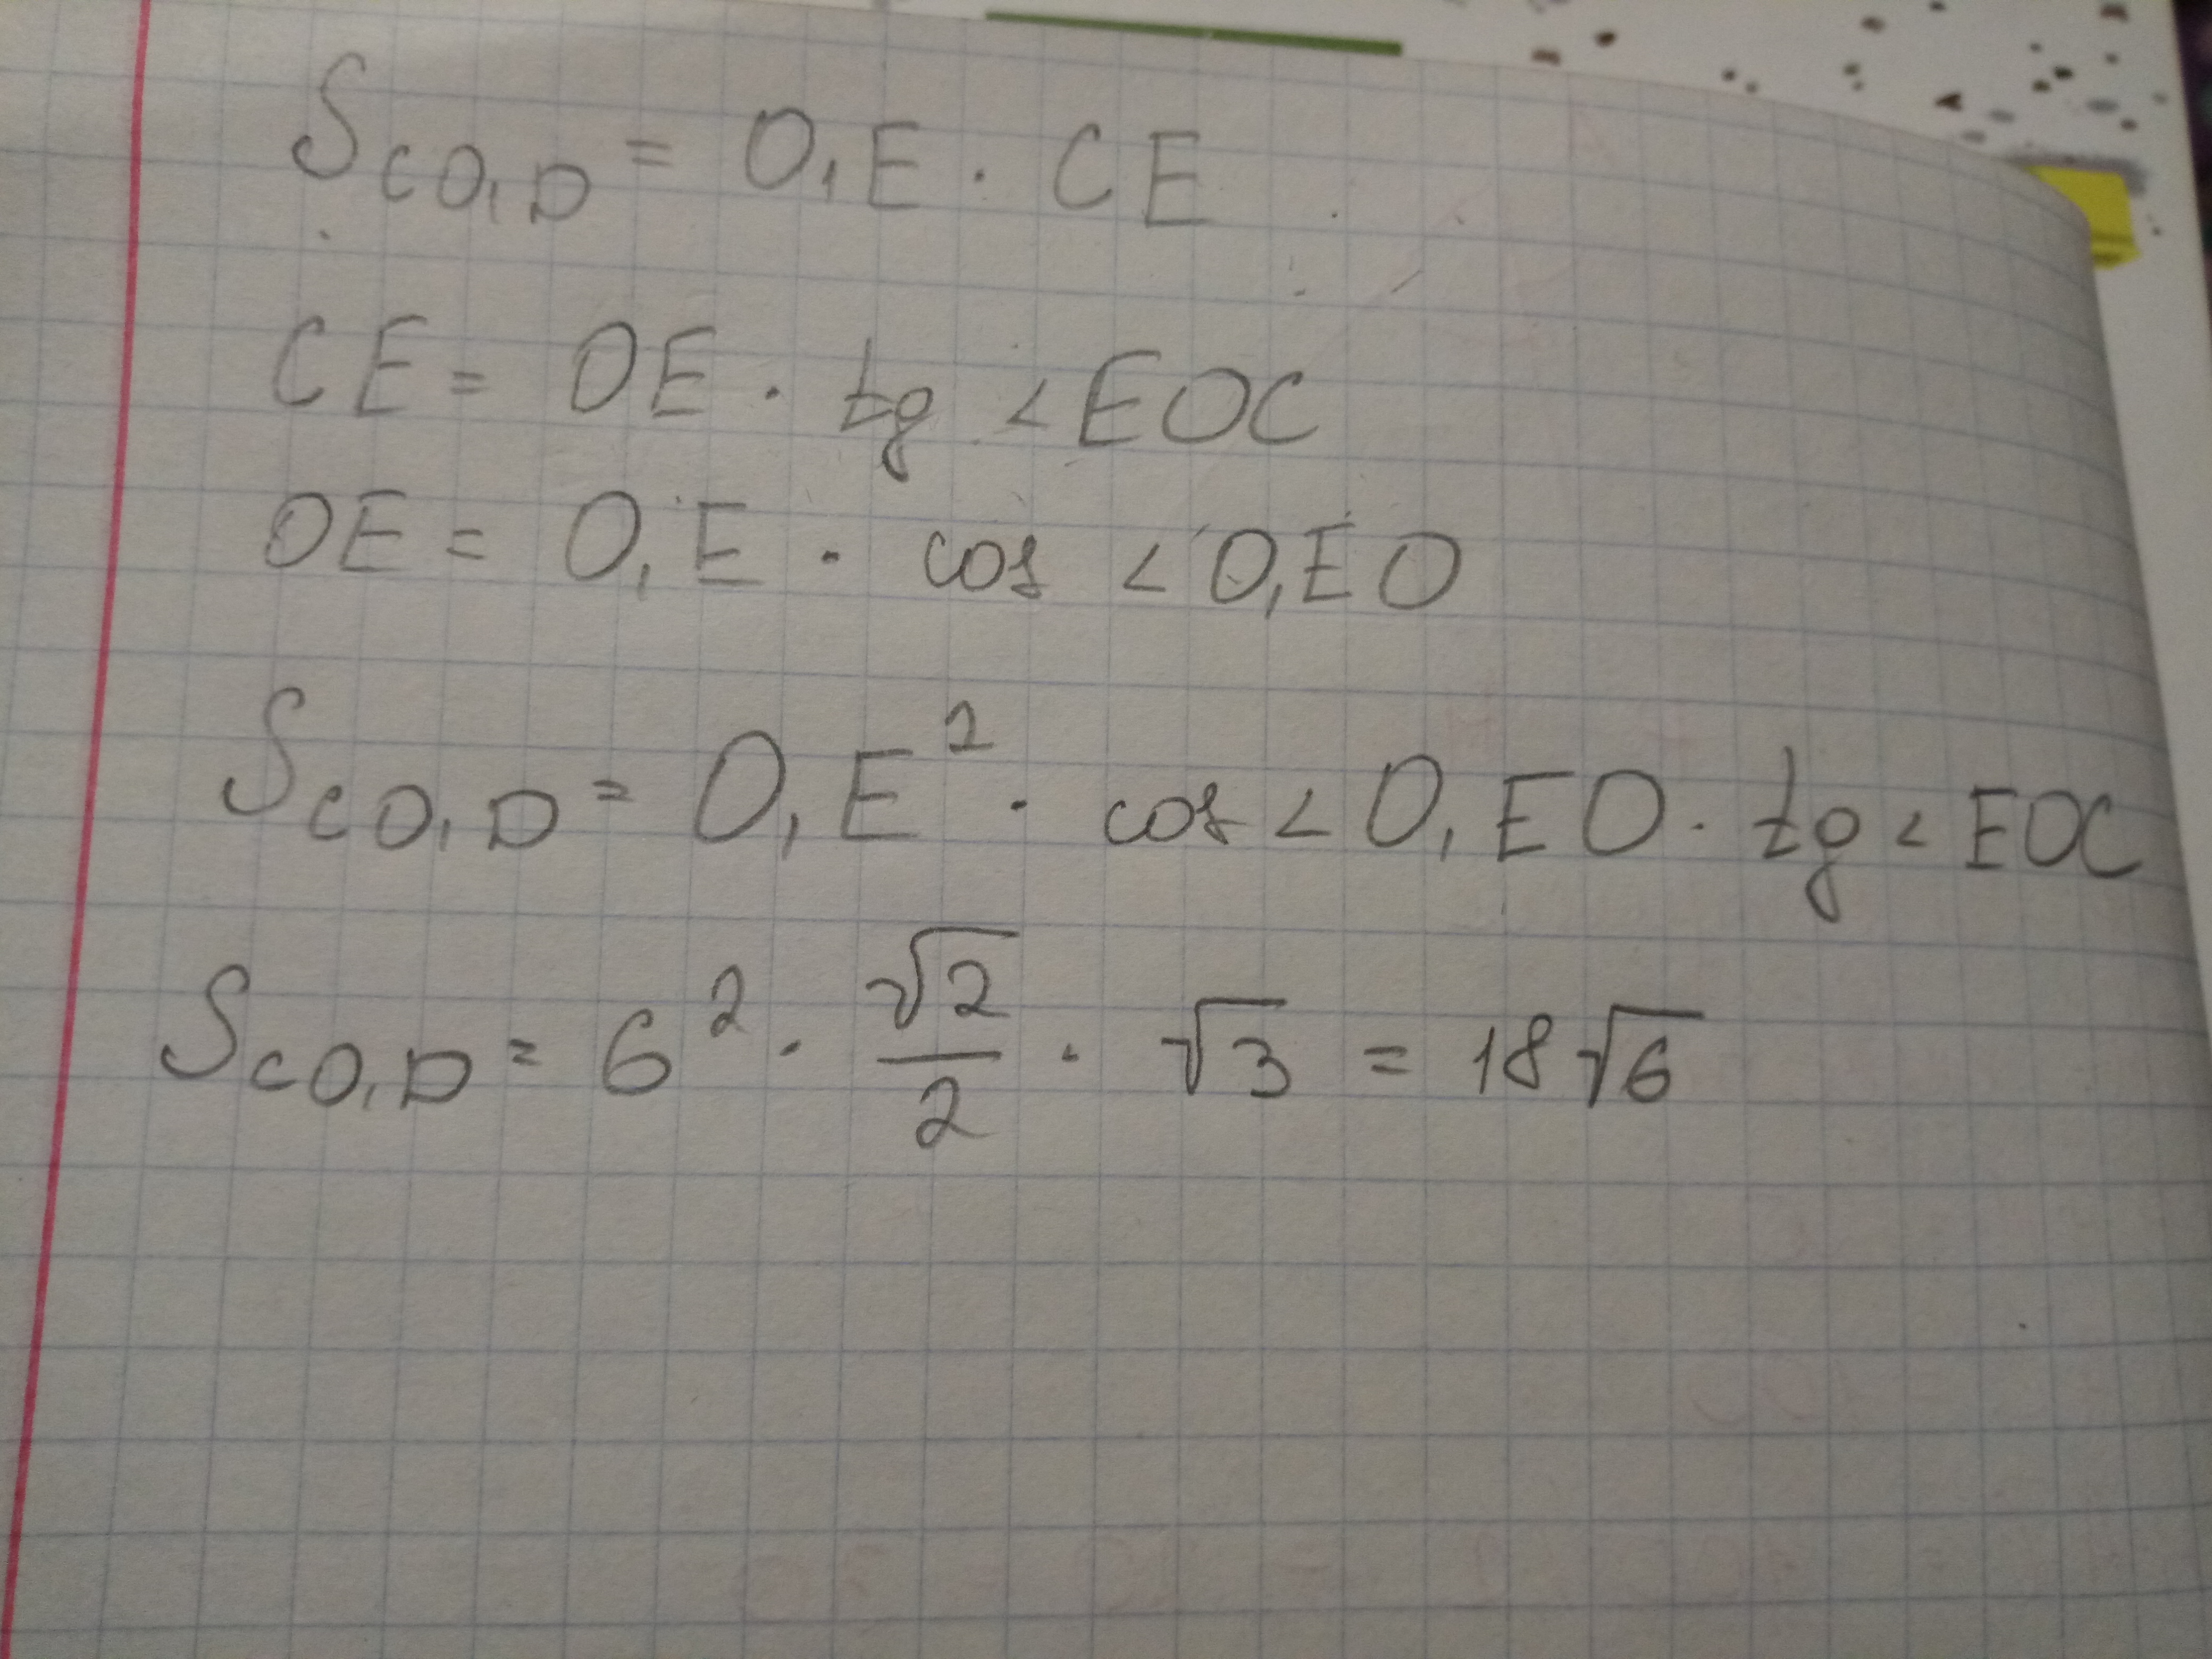 S_{CO_1D} = O_1E · CE
CE = OE · tg ∠EOC
OE = O_1E · cos ∠O_1EO
S_{CO_1D} = O_1E² · cos ∠O_1EO · tg ∠EOC
S_{CO_1D} = 6² · √2/2 · √3 = 18√6